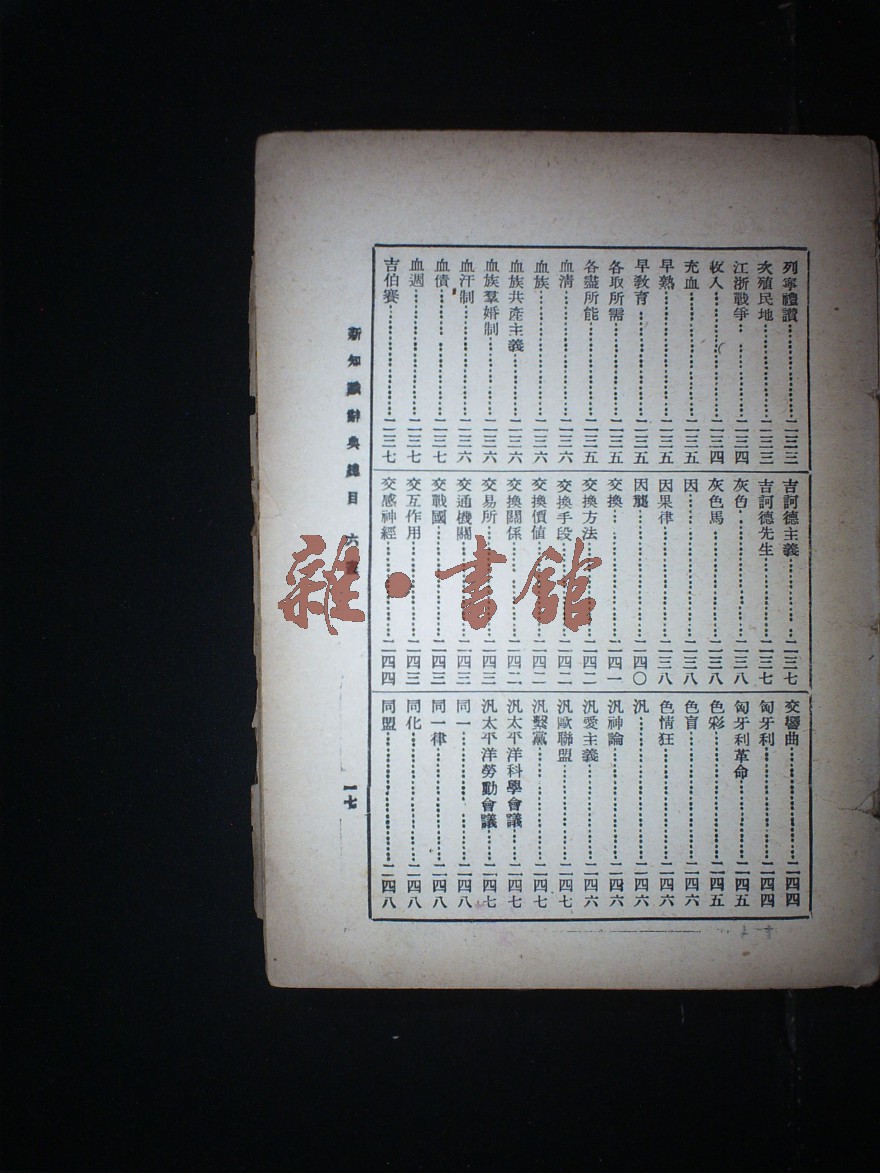 列寧禮讚……二三三
次殖民地……二三三
江浙戰爭……二三四
收入……二三四
充血……二三五
早熟……二三五
早教育……二三五
各取所需……二三五
各盡所能……二三五
血清……二三六
血族……二三六
血族共產主義……二三六
血族羣婚制……二三六
血汗制……二三六
血債……二三七
血週……二三七
吉伯賽……二三七
吉訶德主義……二三七
吉訶德先生……二三七
灰色……二三八
灰色馬……二三八
因……二三八
因果律……二三八
因襲……二四〇
交換……二四一
交換方法……二四二
交換手段……二四二
交換價値……二四二
交換關係……二四二
交易所……二四三
交通機關……二四三
交戰國……二四三
交互作用……二四三
交感神經……二四四
交響曲……二四四
匈牙利……二四四
匈牙利革命……二四五
色彩……二四五
色盲……二四六
色情狂……二四六
汎……二四六
汎神論……二四六
汎愛主義……二四六
汎歐聯盟……二四七
汎繫黨……二四七
汎太平洋科學會議……二四七
汎太平洋勞動會議……二四七
同一……二四八
同一律……二四八
同化……二四八
同盟……二四八
新知識辭典總目 六畫 一七
雜·書館